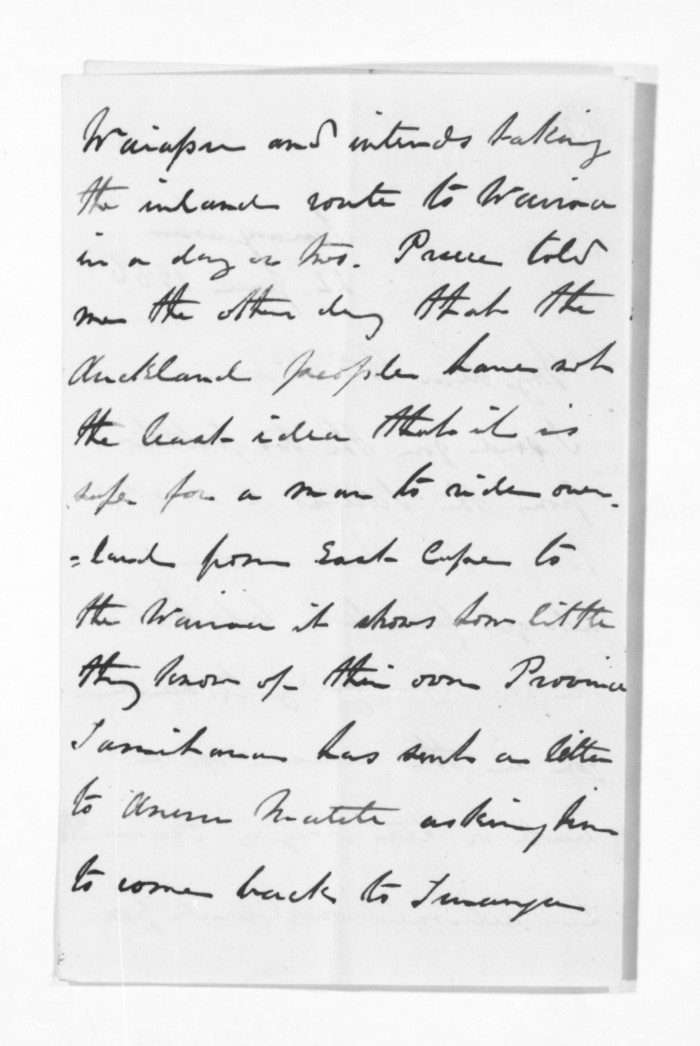 Waiapu and intends taking
the inland route to Wairoa
in a day or two. Preece told
me the other day that the
Auckland people have not
the least idea that it is
safe for a man to ride over-
=land from East Cape to
the Wairoa it shows how little
they know of their own Province
Tamihana has sent a letter
to Anaru Matete asking him
to come back to Turanga